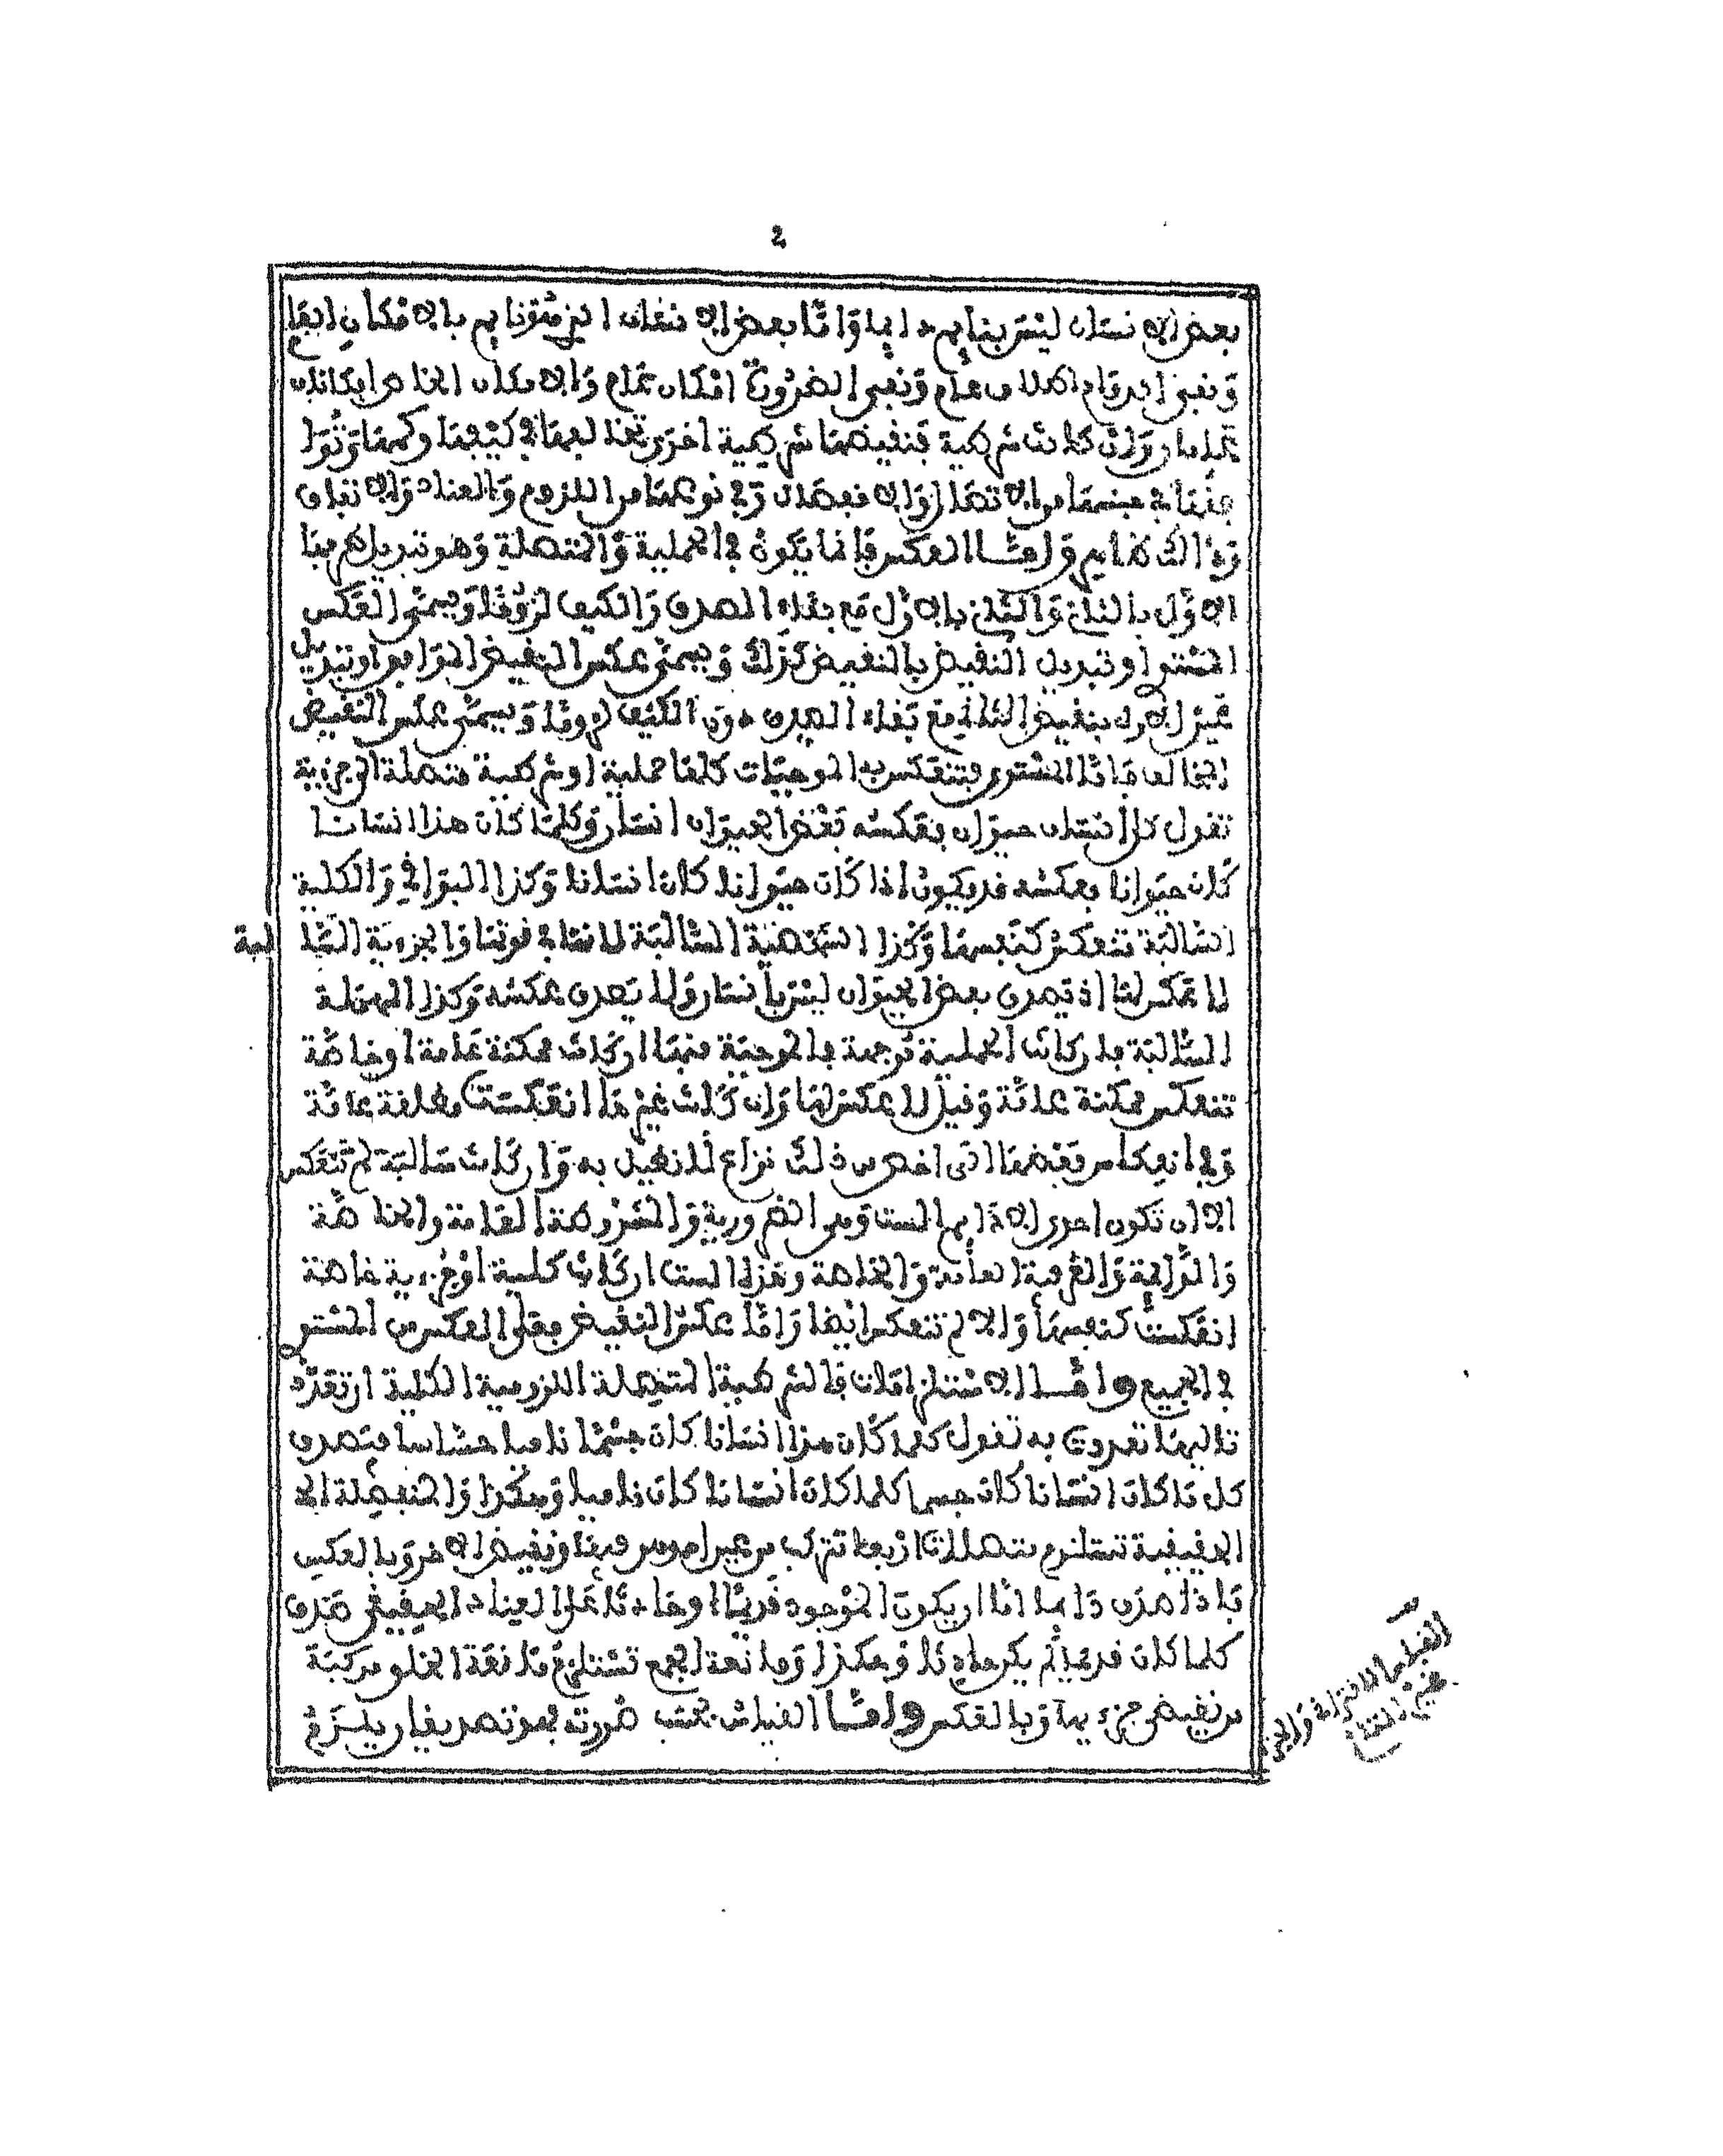 2
بعض الانسان ليس بنايم دايما واما بعض الانسان
ونقيض الدوام اطلاق عام ونقيض الضرورة امكان عام والامكان الخاص
وان كانت شرطية فنقيضها شرطية اخرى تخالفها في كيفها وكمها
في جنسها من الاتصال والانفصال وفي نوعها من اللزوم والعناد والاتفاق
وذالك ظاهر واما العكس فانما يكون في الحملية والمتصلة وهو تبديل طرفيها
الاول بالثاني والثاني بالاول مع بقاء الصدق والكيف لزوما ويسمى العكس
المستوا وتبديل النقيض بالنقيض كذلك ويسمى عكس النقيض الموافق او تبديل
عين الاول بنقيض الثاني مع بقاء الصدق دون الكيف لزوما ويسمى عكس النقيض
المخالف فاما المستوى فتنعكس به الموجبات كلها حملية او شرطية متصلة الى جزءية
تقول كل انسان حيوان بعكسه بعض الحيوان انسان وكلما كان هذا انسانا
كان حيوانا بعكسه قد يكون اذا كان حيوانا كان انسانا وكذا البواقي والكلية
السالبة تنعكس كنفسها وكذا الشخصية السالبة لانها في قوتها والجزءية السالبة
لا عكس لها اذ يصدق بعض الحيوان ليس بانسان ولا يصدق عكسه وكذا المهملة
السالبة فان كانت الحملية موجهة فالموجبة منها ان كانت ممكنة عامة او خاصة
تنعكس ممكنة عامة وقيل لا عكس لها وان كانت غيرها انعكست مطلقة عامة
وفي انعكاس بعضها الى اخص من ذلك نزاع لا نطيل به وان كانت سالبة لم تنعكس
الا ان تكون احدى الدوايم الست وهي الضرورية والمشروطة العامة والخاصة
والدايمة والعرفية العامة والخاصة وهذه الست ان كانت كلية او جزءية خاصة
انعكست كنفسها والا لم تنعكس ايضا واما عكس النقيض فعلى العكس من المستوى
في الجميع واما الاستلزامات فالشرطية المتصلة اللزومية الكلية ان تعدد
تاليها تعددت به تقول كلما كان هذا انسانا كان جسما ناميا حساسا فيصدق
كل ما كان انسانا كان جسما كلما كان انسانا كان ناميا وهكذا والمنفصلة
الحقيقية تستلزم متصلات اربعا تتركب من عين احد جزءيها ونقيض الاخر وبالعكس
فاذا صدق دايما اما ان يكون الموجود قديما او حادثا على العناد الحقيقي صدق
كلما كان قديما لم يكن حادثا وهكذا ومانعة الجمع تستلزم مانعة الخلو مركبة
من نقيض جزءيها وبالعكس واما القياس بحسب صورته فهو تصديقان يلزم
القياس الاقتراني